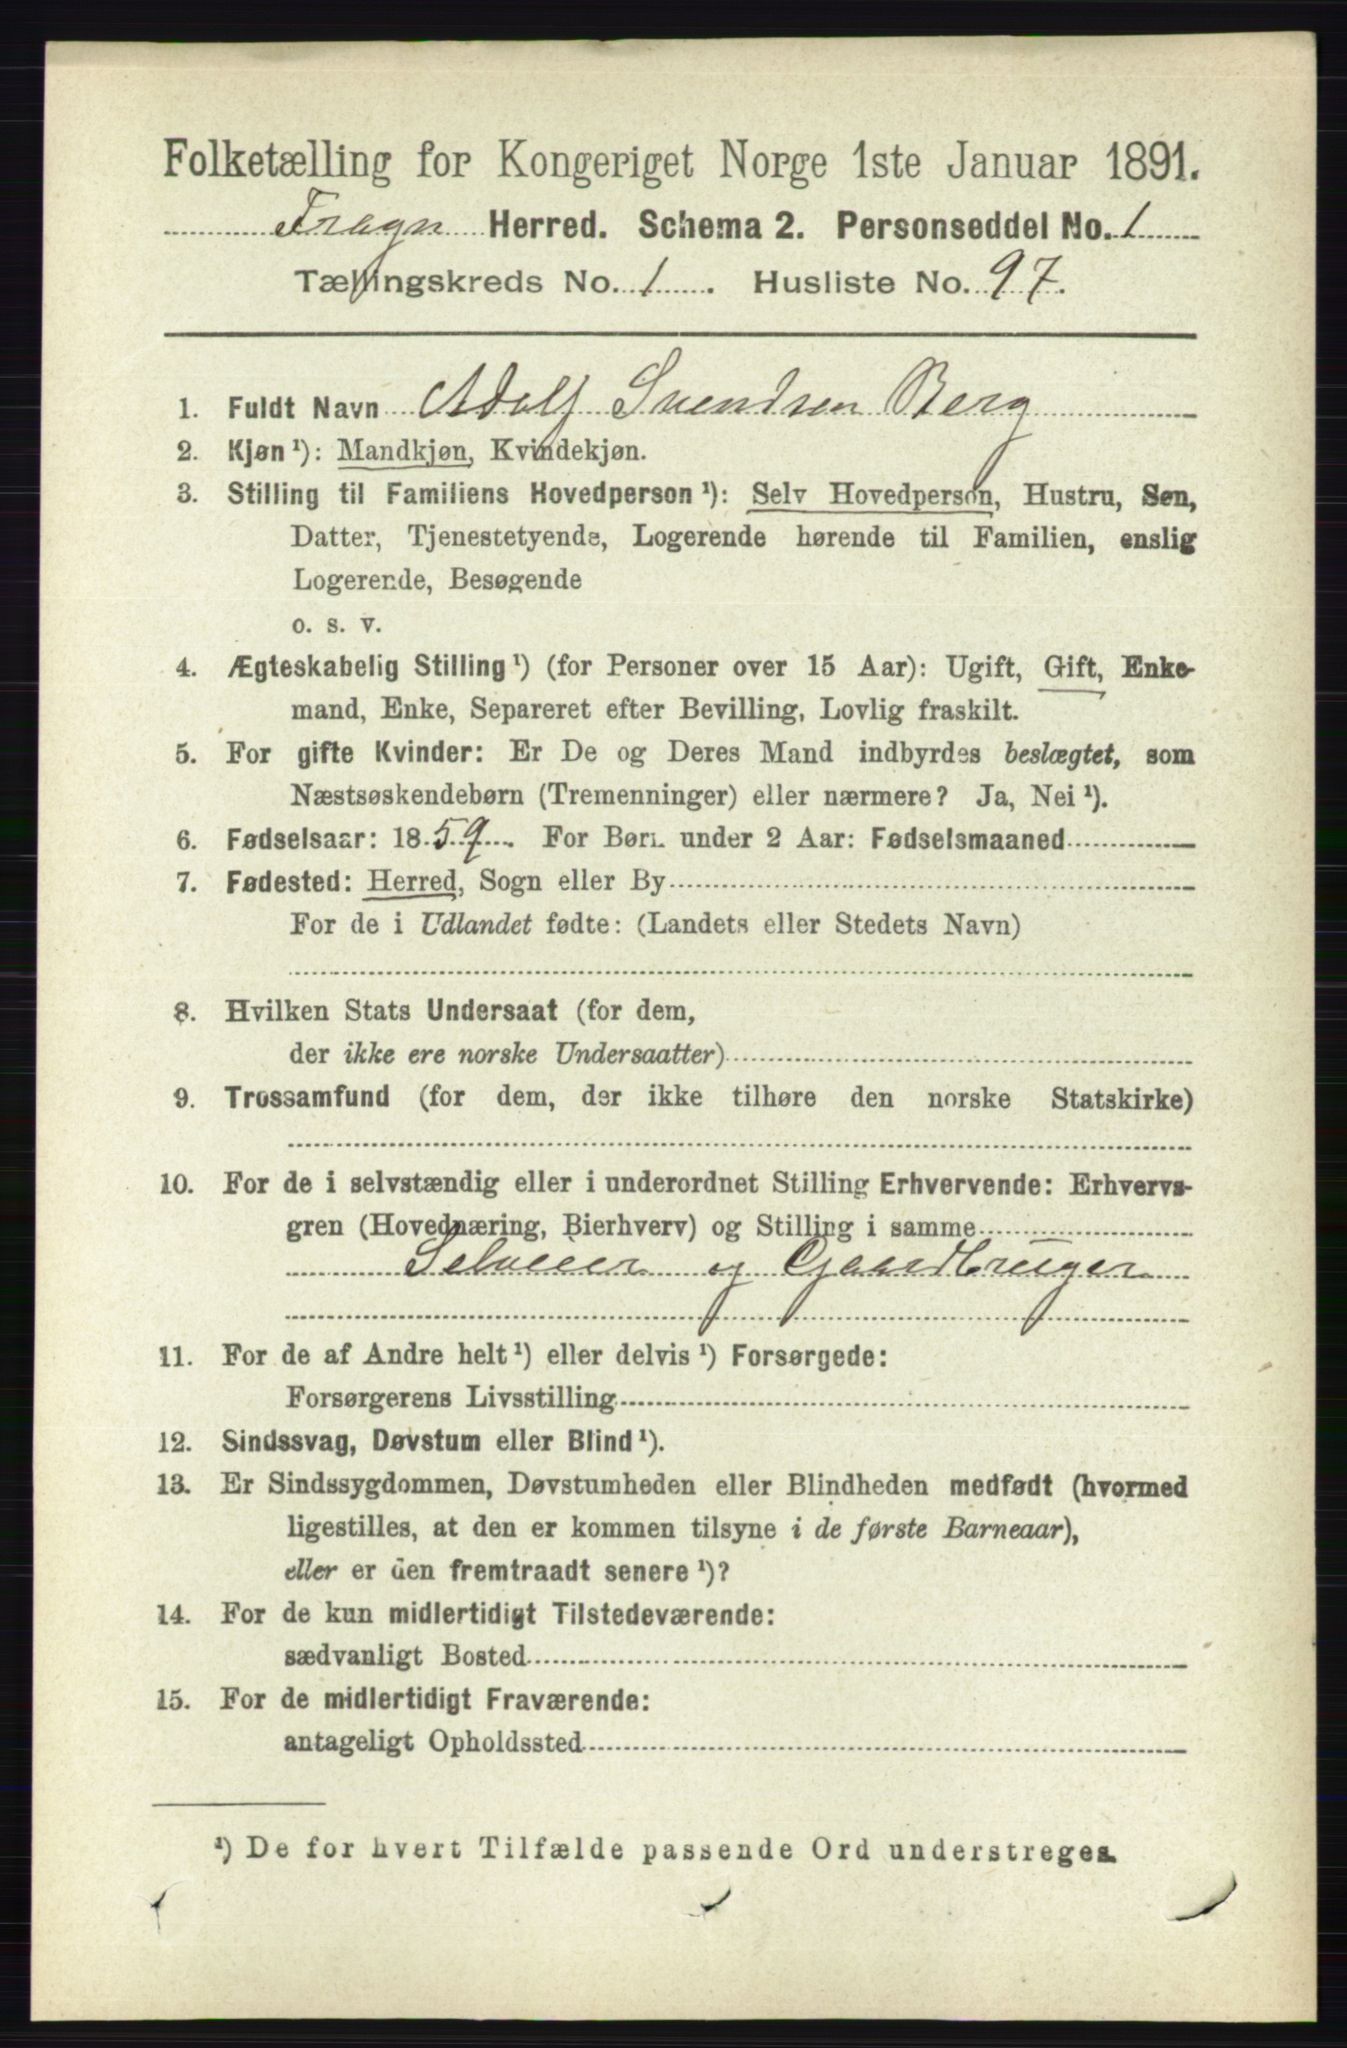 Folketælling for Kongeriget Norge 1ste Januar 1891.
Frogn Herred. Schema 2. Personseddel No. 1
Tællingskreds No. 1. Husliste No. 97.
1. Fuldt Navn Adolf Svendsen Berg
2. Kjøn ¹): Mandkjøn, Kvindekjøn.
3. Stilling til Familiens Hovedperson ¹): Selv Hovedperson, Hustru, Søn,
Datter, Tjenestetyende, Logerende hørende til Familien, enslig
Logerende, Besøgende
o. s. v.
4. Ægteskabelig Stilling ¹) (for Personer over 15 Aar): Ugift, Gift, Enke-
mand, Enke, Separeret efter Bevilling, Lovlig fraskilt.
5. For gifte Kvinder: Er De og Deres Mand indbyrdes beslægtet, som
Næstsøskendebørn (Tremenninger) eller nærmere? Ja, Nei ¹).
6. Fødselsaar: 1859. For Børn under 2 Aar: Fødselsmaaned
7. Fødested: Herred, Sogn eller By
For de i Udlandet fødte: (Landets eller Stedets Navn)
8. Hvilken Stats Undersaat (for dem,
der ikke ere norske Undersaatter)
9. Trossamfund (for dem, der ikke tilhøre den norske Statskirke)
10. For de i selvstændig eller i underordnet Stilling Erhvervende: Erhvervs-
gren (Hovednæring, Bierhverv) og Stilling i samme
Selveier og Gaardbruger
11. For de af Andre helt ¹) eller delvis ¹) Forsørgede:
Forsørgerens Livsstilling
12. Sindssvag, Døvstum eller Blind ¹).
13. Er Sindssygdommen, Døvstumheden eller Blindheden medfødt (hvormed
ligestilles, at den er kommen tilsyne i de første Barneaar),
eller er den fremtraadt senere ¹)?
14. For de kun midlertidigt Tilstedeværende:
sædvanligt Bosted
15. For de midlertidigt Fraværende:
antageligt Opholdssted
¹) De for hvert Tilfælde passende Ord understreges.